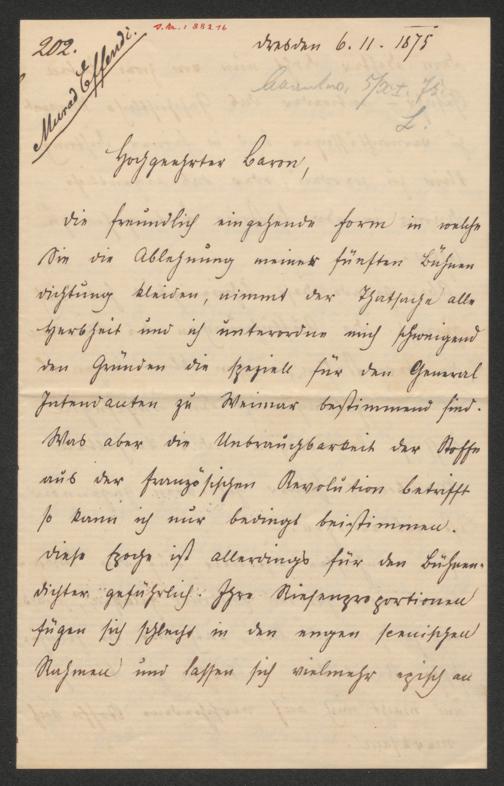 202.
Murad Effendi.
Dresden 6. 11. 1875
Hochgeehrter Baron,
Die freundlich eingehende Form in welche
Sie die Ablehnung meiner fünften Bühnen
dichtung kleiden, nimmt der Thatsache alle
Herbheit und ich unterordne mich schweigend
den Gründen die speziell für den General
Intendanten zu Weimar bestimmend sind.
Was aber die Unbrauchbarkeit der Stoffe
aus der französischen Revolution betrifft
so kann ich nur bedingt beistimmen.
Diese Epoche ist allerdings für den Bühnen-
dichter gefährlich. Ihre Riesenproportionen
fügen sich schlecht in den engen scenischen
Rahmen und lassen sich vielmehr episch an